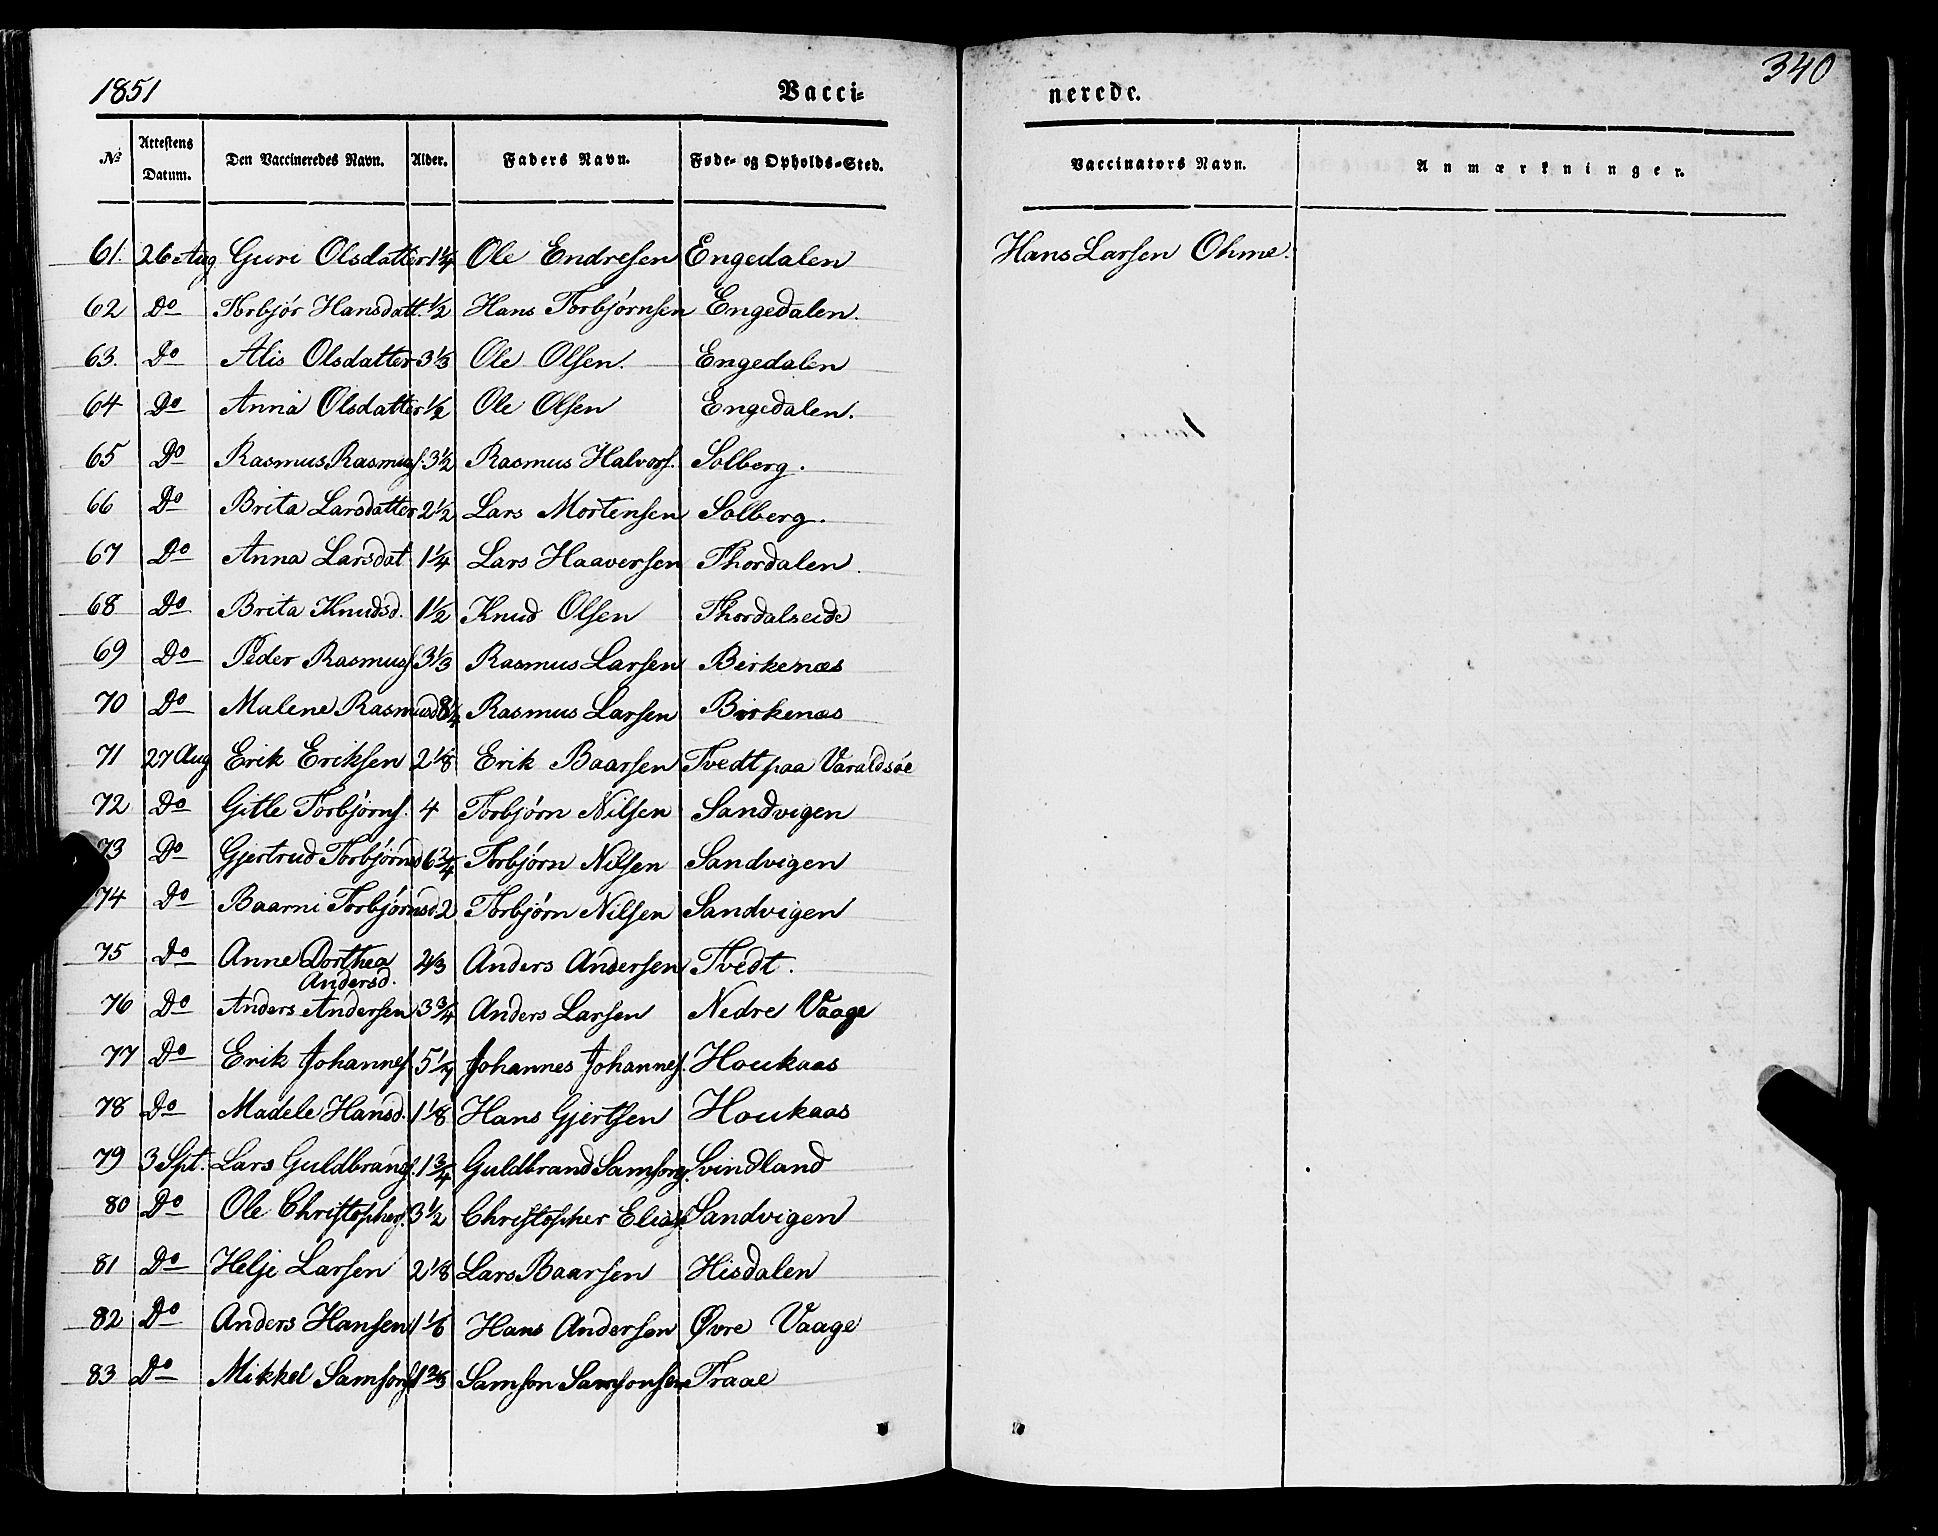 1851 Vacci= nerede. 340
No Attestens Datum. Den Vaccineredes Navn. Alder. Faders Navn. Føde- og Opholds-Sted. Vaccinators Navn. Anmærkninger.
61. 26 Aug Guri Olsdatter 1¼ Ole Endresen Engedalen Hans Larsen Ohme.
62 Do Torbjør Hansdatt. ½ Hans Torbjørnsen Engedalen.
63. Do Alis Olsdatter 3⅓ Ole Olsen. Engedalen
64 Do Anna Olsdatter ½ Ole Olsen Engedalen.
65 Do Rasmus Rasmuss. 3½ Rasmus Halvors. Solberg.
66 Do Brita Larsdatter 2½ Lars Mortensen Solberg.
67 Do Anna Larsdat 1¼ Lars Haaversen Thordalen.
68 Do Brita Knudsd. 1½ Knud Olsen Thordalseide
69 Do Peder Rasmuss. 3⅓ Rasmus Larsen Birkenæs
70 Do Malene Rasmusd 8¼ Rasmus Larsen Birkenæs
71 27 Aug Erik Eriksen 2⅛ Erik Baarsen Tvedt paa Varaldsøe
72 Do Gitle Torbjørns. 4 Torbjørn Nilsen Sandvigen
73 Do Gjertrud Torbjørnsd 6¾ Torbjørn Nilsen Sandvigen
74 Do Baarni Torbjørnsd. 2 Torbjørn Nilsen Sandvigen
75 Do Anne Dorthea ⅔ Anders Andersen Tvedt.
Andersd.
76 Do Anders Andersen 3¾ Anders Larsen Nedre Vaage
77 Do Erik Johannes. Johannes Johannes. Houkaas
78 Do Madele Hansd. 1⅛ Hans Gjertsen Houkaas
79 3 Spt. Lars Guldbrands. 1¾ Guldbrand Samsons. Svindland
80 Do Ole Christophers. 3½ Christopher Elias. Sandvigen
81 Do Helje Larsen 2⅛ Lars Baarsen Hisdalen
82 Do Anders Hansen 1⅙ Hans Andersen Øvre Vaage
83 Do Mikkel Samsons. 1⅔ Samson Samsonsen Traae